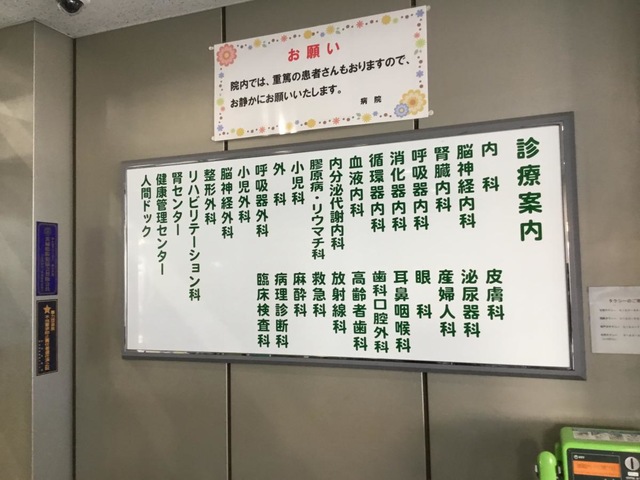 お願い
院内では、重篤の患者さんもおりますので、
お静かにお願いいたします。
病院
診療案内
内科
脳神経内科
腎臓内科
呼吸器内科
消化器内科
循環器内科
血液内科
内分泌代謝内科
膠原病・リウマチ科
小児科
外科
呼吸器外科
小児外科
脳神経外科
整形外科
リハビリテーション科
腎センター
健康管理センター
人間ドック
皮膚科
泌尿器科
産婦人科
眼科
耳鼻咽喉科
歯科口腔外科
高齢者歯科
放射線科
救急科
麻酔科
病理診断科
臨床検査科